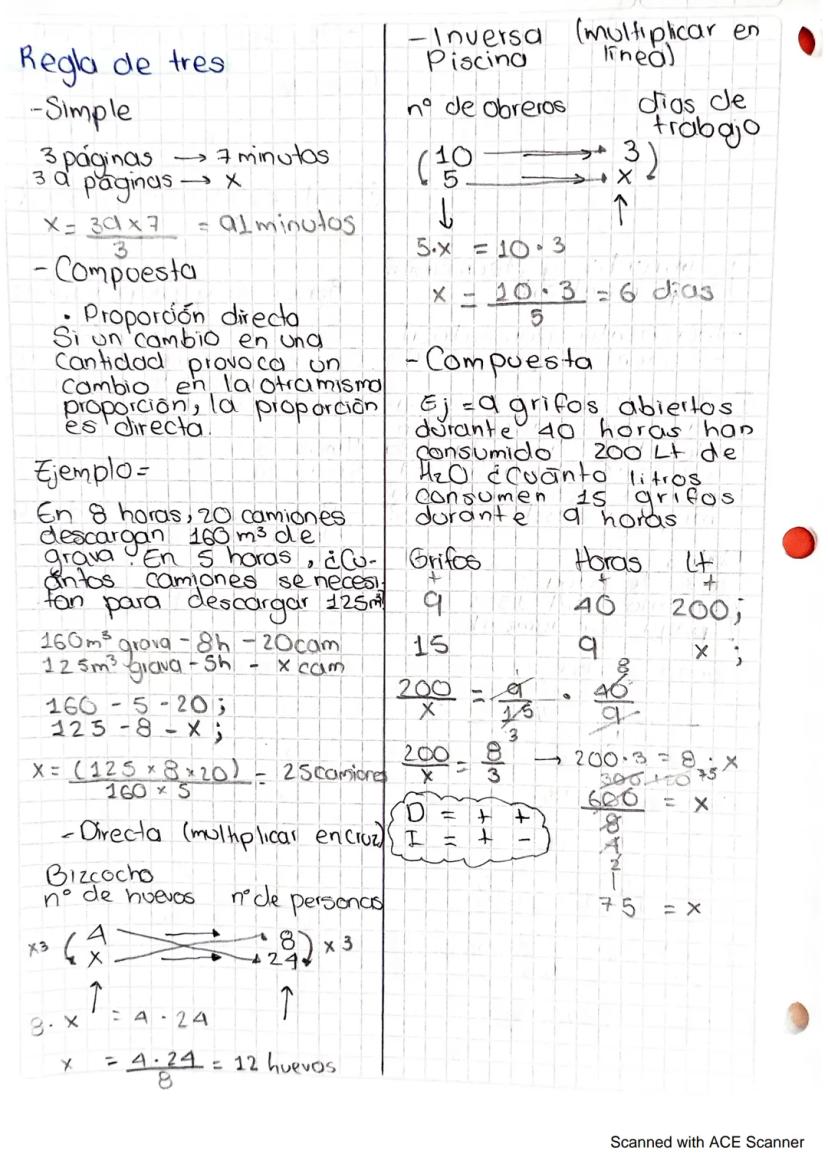 Regla de tres
-Simple
3 páginas → 7 minutos
39 páginas → x
x = 39 x 7 = 91 minutos
3
- Compuesta
• Proporción directa
Si un cambio en una
cantidad provoca un
cambio en la otra misma
proporción, la proporción
es directa.
Ejemplo=
En 8 horas, 20 camiones
descargan 160 m³ de
grava. En 5 horas, ¿Cu-
ántos camiones se necesi-
tan para descargar 125m³
160m³ grava - 8h - 20cam
125m³ grava - 5h - x cam
160 - 5 - 20;
125 - 8 - x;
x = (125 x 8 x 20) = 25camiones
160 x 5
- Directa (multiplicar en cruz)
Bizcocho
nº de huevos nº de personas
x3 ( 4 8 ) x3
x 24
8. x = 4 . 24
x = 4 . 24 = 12 huevos
8
- Inversa (multiplicar en
Piscina línea)
nº de obreros días de
trabajo
( 10 → 3 )
5 → x
↓ ↑
5.x = 10 . 3
x = 10 . 3 = 6 días
5
- Compuesta
Ej = 9 grifos abiertos
durante 40 horas han
consumido 200 Lt de
H2O ¿cuánto litros
consumen 15 grifos
durante 9 horas
Grifos Horas Lt
+ + +
9 40 200;
15 9 x ;
8
200 = 9 . 40
x 15 9
3
200 = 8 → 200 . 3 = 8 . x
x 3
75
600 = x
8
4
2
1
D = + +
I = + -
75 = x
Scanned with ACE Scanner